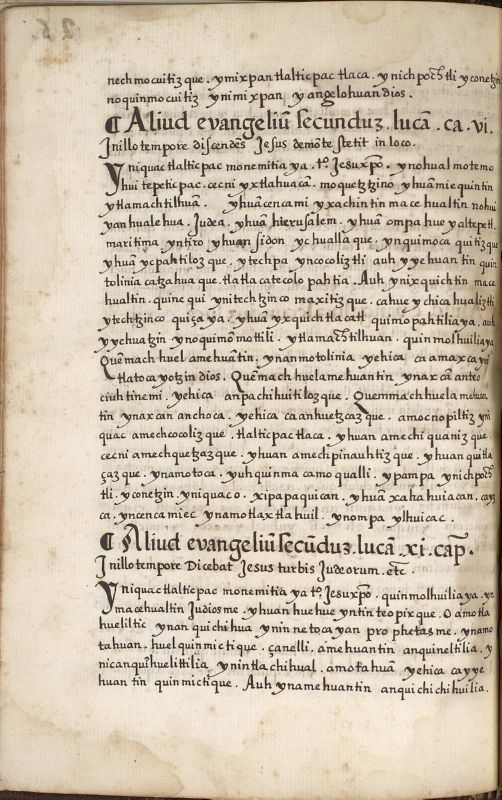 nech mocuitiz que. y mixpan tlalticpac tlaca. y nich poch tli y conetzin
no quin mo cuitiz yn imixpan y angelo huan dios.
¶ Aliud evangeliū secunduz. lucā. ca. vi.
In illo tempore discendēs Jesus de mōte stetit in loco.
Yn iquac tlaltic pac monemitia ya. to. Jesu xpo. y nohual motemo
yhui tepetic pac. cecni yxtlahuacā. moquetzitzino yhuā mie quintin
ytlamach tilhuā. yhuā cencami yxachintin mace hualtin nohui
yan huale hua. Judea. yhuā hierusalem. yhuā ompa hue yaltepetl.
maritima. yntiro yhuan sidon yc hualla que. yn quimoca quitiz que
yhuā yc pahtiloz que. y techpa yncocoliztli auh yye huan tin quin
tolinia catza hua que. tlatlacatecolo pahtia. Auh yn ixquich tin mace
hualtin. quine qui ynitech tzinco maxitiz que. cahue y chica hualiztli
ytech tzinco quiça ya. yhuā yxquich tlacatl quimo pahtilia ya. auh
y yehuatzin ynoquimō mottili. ytlamach tilhuan. quin molhuilia ya
Quēmach huel amehuātin. ynan motolinia yehica ca amaxca yni
tlatoca yotzin dios. Quēmach huel amehuantin ynaxcā anteo
ciuh tinemi. yehica anpachihuitiloz que. Quemmach huel amehuan
tin ynaxcan anchoca. yehica ca anhuetzcaz que. amocnopiltiz yni
quac amechcocoliz que. tlalticpac tlaca. yhuan amechiquaniz que.
cecni amechquetzaz que. yhuan amechpinauhtiz que. yhuan quitla
çaz que. ynamotoca. yuh quinma camo qualli. y pampa ynich poch
tli. yconetzin. yniquac o. xipapaquican. yhuā xahahuiacan. cayz
ca. yncenca miec ynamotlaxtlahuil. ynompa ylhuicac.
¶ Aliud evangeliū secūduz. lucā. xi. cap.
In illo tempore Dicebat Jesus turbis Judeorum. etc.
Yn iquac tlaltic pac monemitia ya to. Jesu xpo. quin molhuilia ya. yn
macehualtin Judiosme. yhuan huehue yntin teopixque. O amotla
hueliltic ynan quichihua ynin netoca yan prophetasme. ynamo
tahuan. huel quin micti que. çanelli. amehuantin anquineltilia. y
nican quihuelittilia ynin tlachihual. amotahuā yehica ca yye
huan tin quinmictique. Auh yn amehuantin anquichichihuilia.